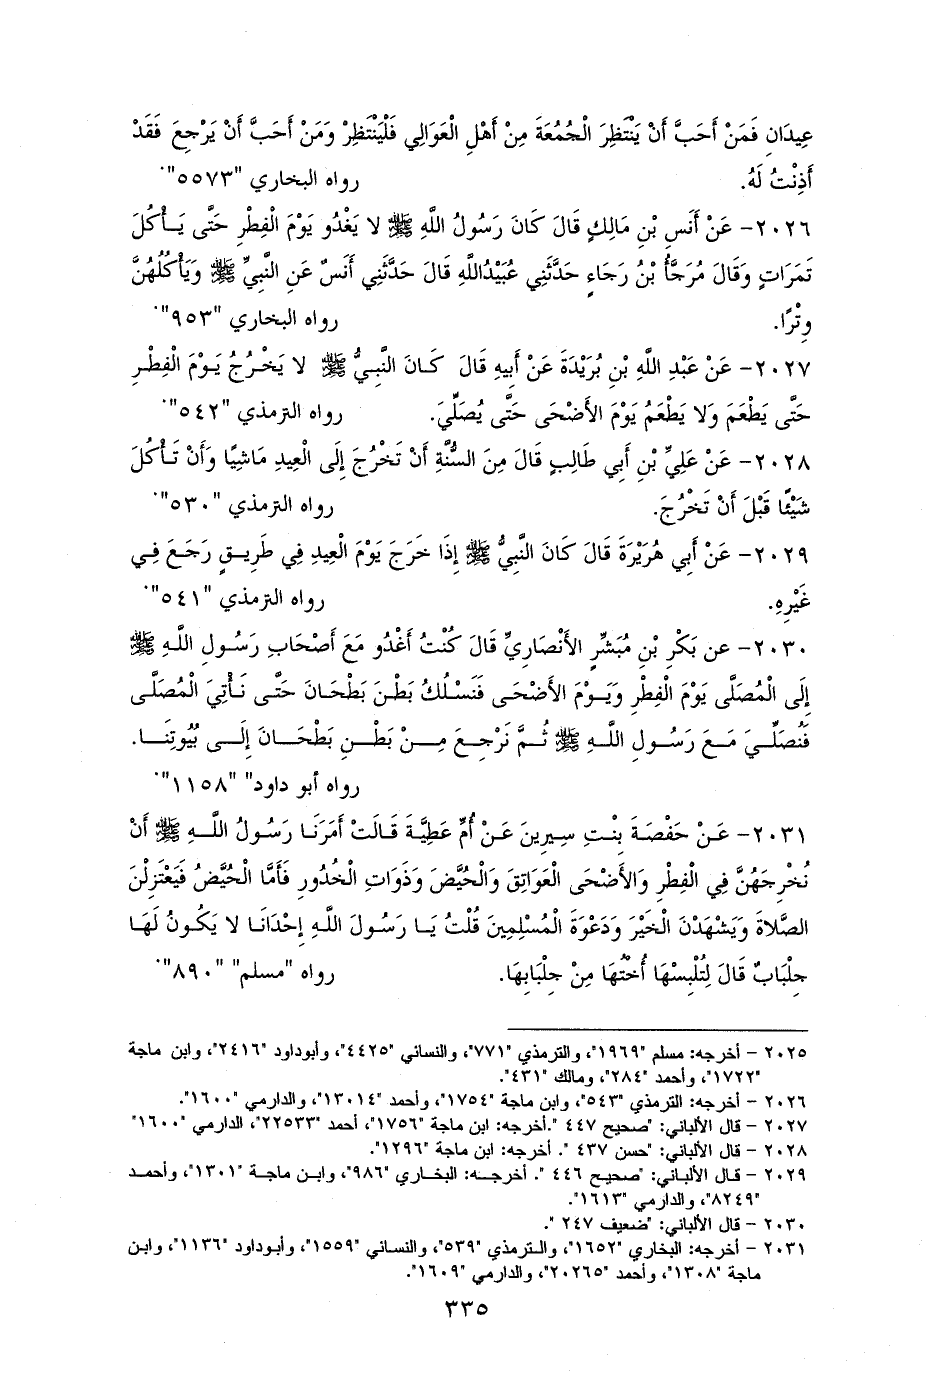 عِيدَانِ فَمَنْ أَحَبَّ أَنْ يَنْتَظِرَ الْجُمُعَةَ مِنْ أَهْلِ الْعَوَالِي فَلْيَنْتَظِرْ وَمَنْ أَحَبَّ أَنْ يَرْجِعَ فَقَدْ
أَذِنْتُ لَهُ. رواه البخاري "٥٥٧٣".
٢٠٢٦- عَنْ أَنَسِ بْنِ مَالِكٍ قَالَ كَانَ رَسُولُ اللَّهِ ﷺ لا يَغْدُو يَوْمَ الْفِطْرِ حَتَّى يَأْكُلَ
تَمَرَاتٍ وَقَالَ مُرَجَّأُ بْنُ رَجَاءٍ حَدَّثَنِي عُبَيْدُاللَّهِ قَالَ حَدَّثَنِي أَنَسٌ عَنِ النَّبِيِّ ﷺ وَيَأْكُلُهُنَّ
وِتْرًا. رواه البخاري "٩٥٣".
٢٠٢٧- عَنْ عَبْدِ اللَّهِ بْنِ بُرَيْدَةَ عَنْ أَبِيهِ قَالَ كَانَ النَّبِيُّ ﷺ لا يَخْرُجُ يَوْمَ الْفِطْرِ
حَتَّى يَطْعَمَ وَلا يَطْعَمُ يَوْمَ الأَضْحَى حَتَّى يُصَلِّيَ. رواه الترمذي "٥٤٢".
٢٠٢٨- عَنْ عَلِيِّ بْنِ أَبِي طَالِبٍ قَالَ مِنَ السُّنَّةِ أَنْ تَخْرُجَ إِلَى الْعِيدِ مَاشِيًا وَأَنْ تَأْكُلَ
شَيْئًا قَبْلَ أَنْ تَخْرُجَ. رواه الترمذي "٥٣٠".
٢٠٢٩- عَنْ أَبِي هُرَيْرَةَ قَالَ كَانَ النَّبِيُّ ﷺ إِذَا خَرَجَ يَوْمَ الْعِيدِ فِي طَرِيقٍ رَجَعَ فِي
غَيْرِهِ. رواه الترمذي "٥٤١".
٢٠٣٠- عن بَكْرِ بْنِ مُبَشِّرٍ الأَنْصَارِيِّ قَالَ كُنْتُ أَغْدُو مَعَ أَصْحَابِ رَسُولِ اللَّهِ ﷺ
إِلَى الْمُصَلَّى يَوْمَ الْفِطْرِ وَيَوْمَ الأَضْحَى فَنَسْلُكُ بَطْنَ بَطْحَانَ حَتَّى نَأْتِيَ الْمُصَلَّى
فَنُصَلِّيَ مَعَ رَسُولِ اللَّهِ ﷺ ثُمَّ نَرْجِعَ مِنْ بَطْنِ بَطْحَانَ إِلَى بُيُوتِنَا.
رواه أبو داود" "١١٥٨".
٢٠٣١- عَنْ حَفْصَةَ بِنْتِ سِيرِينَ عَنْ أُمِّ عَطِيَّةَ قَالَتْ أَمَرَنَا رَسُولُ اللَّهِ ﷺ أَنْ
نُخْرِجَهُنَّ فِي الْفِطْرِ وَالأَضْحَى الْعَوَاتِقَ وَالْحُيَّضَ وَذَوَاتِ الْخُدُورِ فَأَمَّا الْحُيَّضُ فَيَعْتَزِلْنَ
الصَّلاةَ وَيَشْهَدْنَ الْخَيْرَ وَدَعْوَةَ الْمُسْلِمِينَ قُلْتُ يَا رَسُولَ اللَّهِ إِحْدَانَا لا يَكُونُ لَهَا
جِلْبَابٌ قَالَ لِتُلْبِسْهَا أُخْتُهَا مِنْ جِلْبَابِهَا. رواه "مسلم" "٨٩٠".
٢٠٢٥ - أخرجه: مسلم "١٩٦٩"، والترمذي "٧٧١"، والنسائي "٤٤٢٥"، وأبوداود "٢٤١٦"، وابن ماجة
"١٧٢٢"، وأحمد "٢٨٤"، ومالك "٤٣١".
٢٠٢٦ - أخرجه: الترمذي "٥٤٣"، وابن ماجة "١٧٥٤"، وأحمد "١٣٠١٤"، والدارمي "١٦٠٠".
٢٠٢٧ - قال الألباني: "صحيح ٤٤٧ ".أخرجه: ابن ماجة "١٧٥٦"، أحمد "٢٢٥٣٣"، الدارمي "١٦٠٠"
٢٠٢٨ - قال الألباني: "حسن ٤٣٧ ". أخرجه: ابن ماجة "١٢٩٦".
٢٠٢٩ - قال الألباني: "صحيح ٤٤٦ ". أخرجه: البخاري "٩٨٦"، وابن ماجة "١٣٠١"، وأحمد
"٨٢٤٩"، والدارمي "١٦١٣".
٢٠٣٠ - قال الألباني: "ضعيف ٢٤٧ ".
٢٠٣١ - أخرجه: البخاري "١٦٥٢"، والترمذي "٥٣٩"، والنسائي "١٥٥٩"، وأبوداود "١١٣٦"، وابن
ماجة "١٣٠٨"، وأحمد "٢٠٢٦٥"، والدارمي "١٦٠٩".
٣٣٥